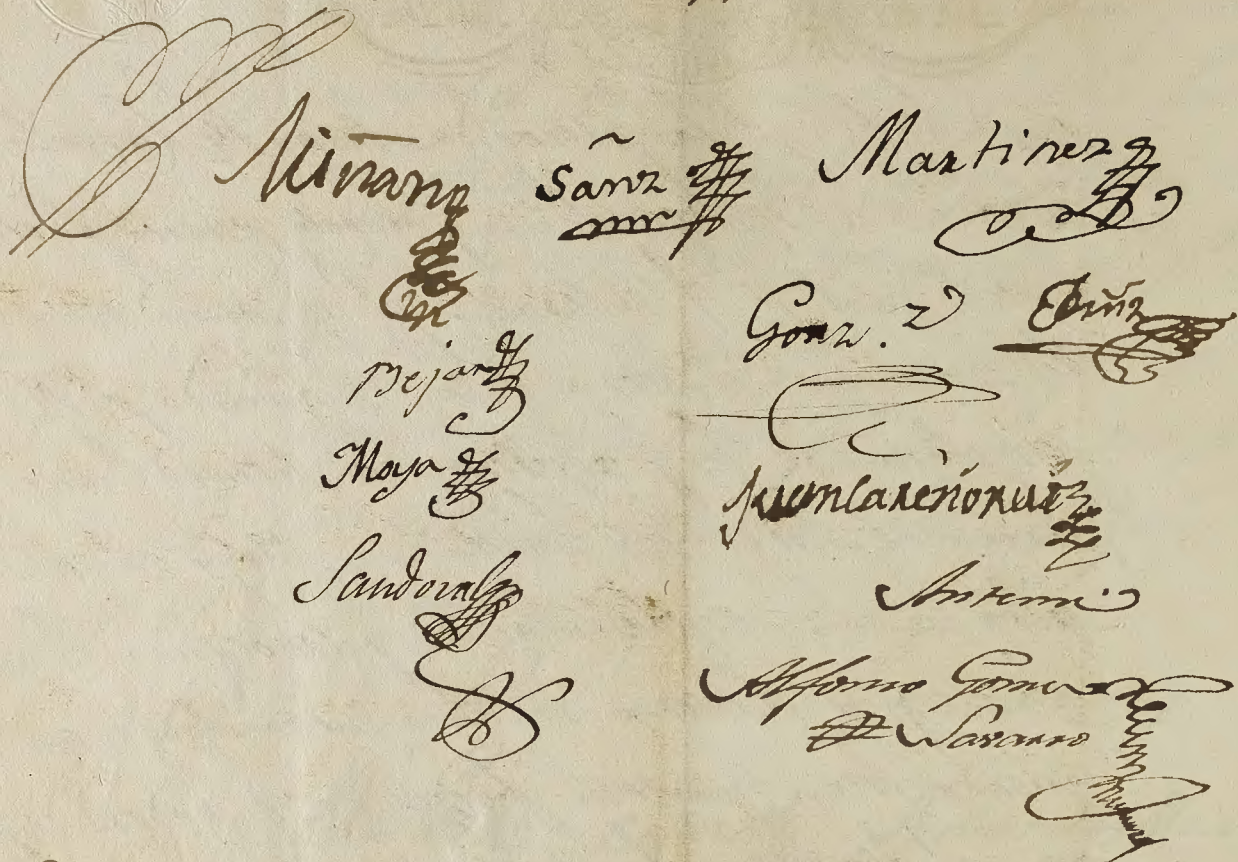 Miñano Sañz Martinez
Gonz.z
Bejar
Moya
Juan Careño Ruiz
Sandoval
Antemi
Alfonso Gomez
Navarro